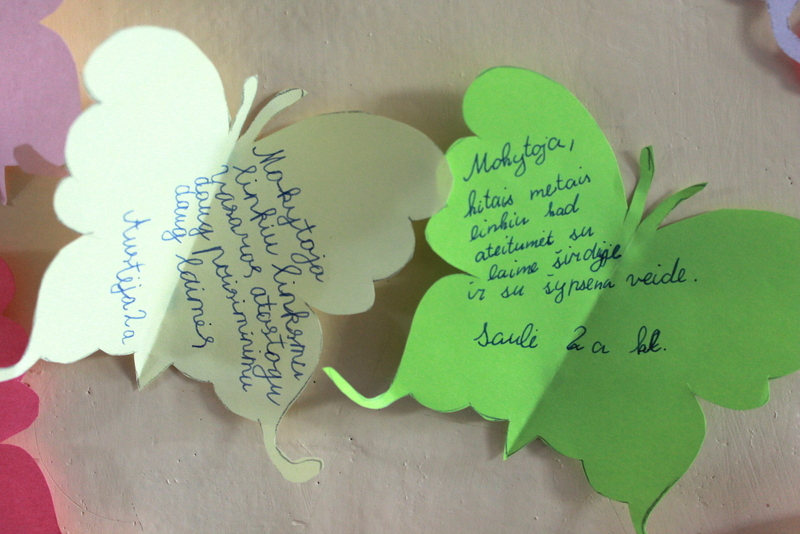 Mokytoja
linkiu linksmu
vasaros atostogu
daug paisiminimu
daug laimės
Austėja 2a
Mokytoja,
kitais metais
linkiu kad
ateitumėt su
laime širdyje
ir su šypsena veide.
Saulė 2 a kl.